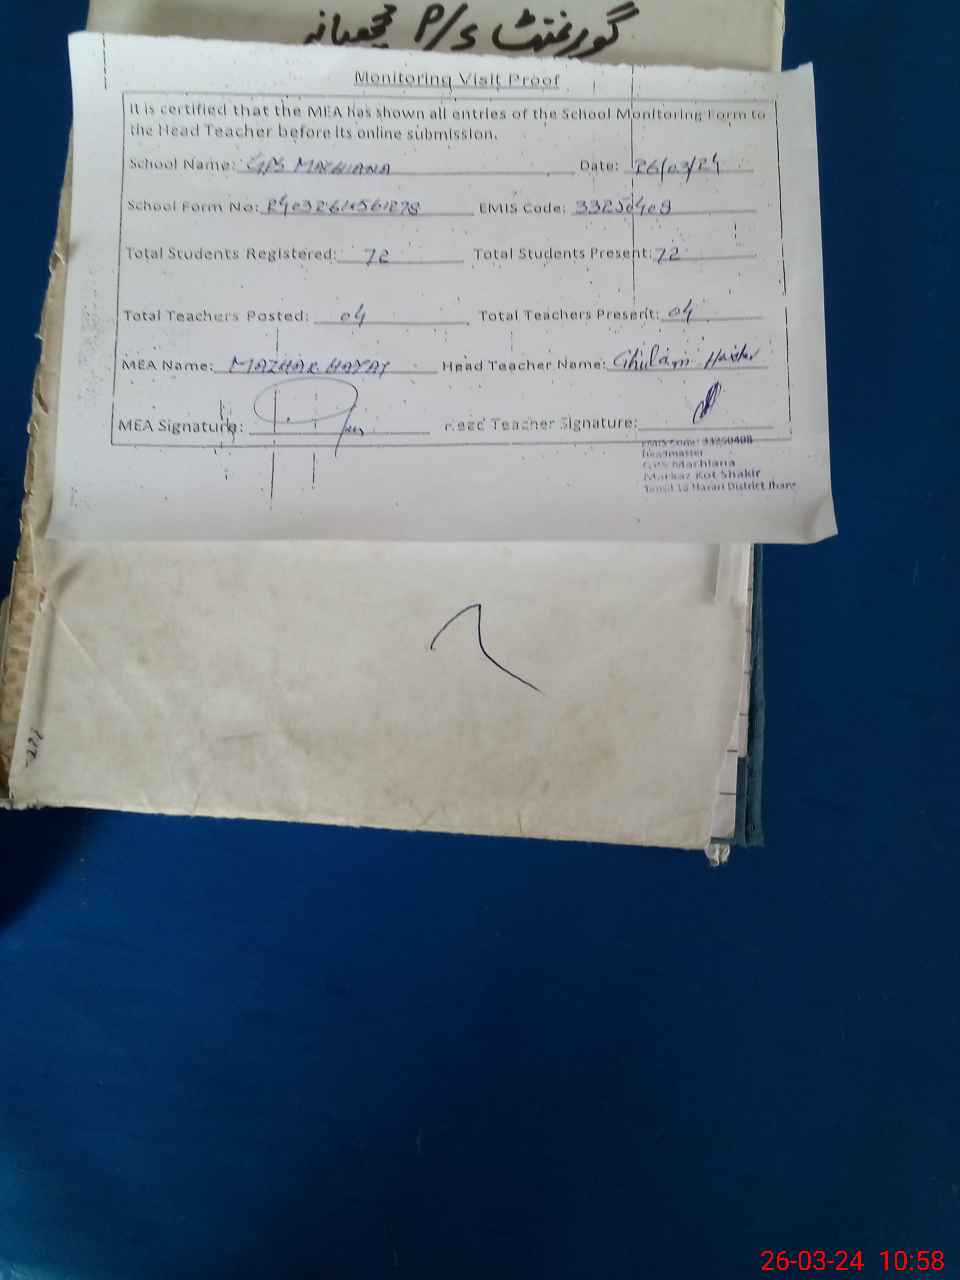 گورنمنٹ P/S مچھیانہ
Monitoring Visit Proof
It is certified that the MEA has shown all entries of the School Monitoring Form to
the Head Teacher before its online submission.
School Name: GPS MACHIANA Date: 26/03/24
School Form No: EMIS Code: 33250408
Total Students Registered: 72 Total Students Present: 72
Total Teachers Posted: 04 Total Teachers Present: 04
MEA Name: MAZHAR HAYAT Head Teacher Name: Ghulam Haider
MEA Signature: Head Teacher Signature:
EMIS Code: 33250408
Headmaster
GPS Machiana
Markaz Kot Shakir
Tehsil 18 Hazari District Jhang
26-03-24 10:58